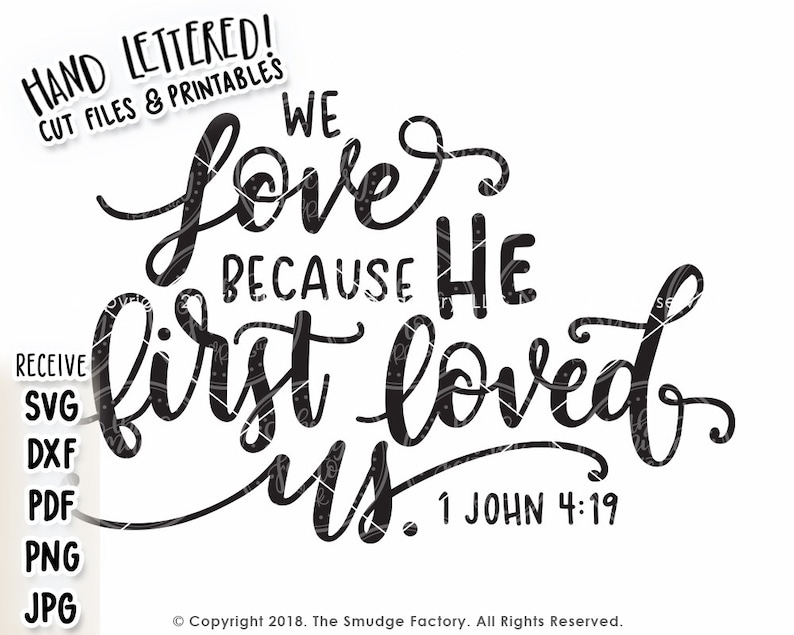 HAND LETTERED!
CUT FILES & PRINTABLES
WE
love
BECAUSE HE
first loved
us.
1 JOHN 4:19
RECEIVE
SVG
DXF
PDF
PNG
JPG
© Copyright 2018. The Smudge Factory. All Rights Reserved.